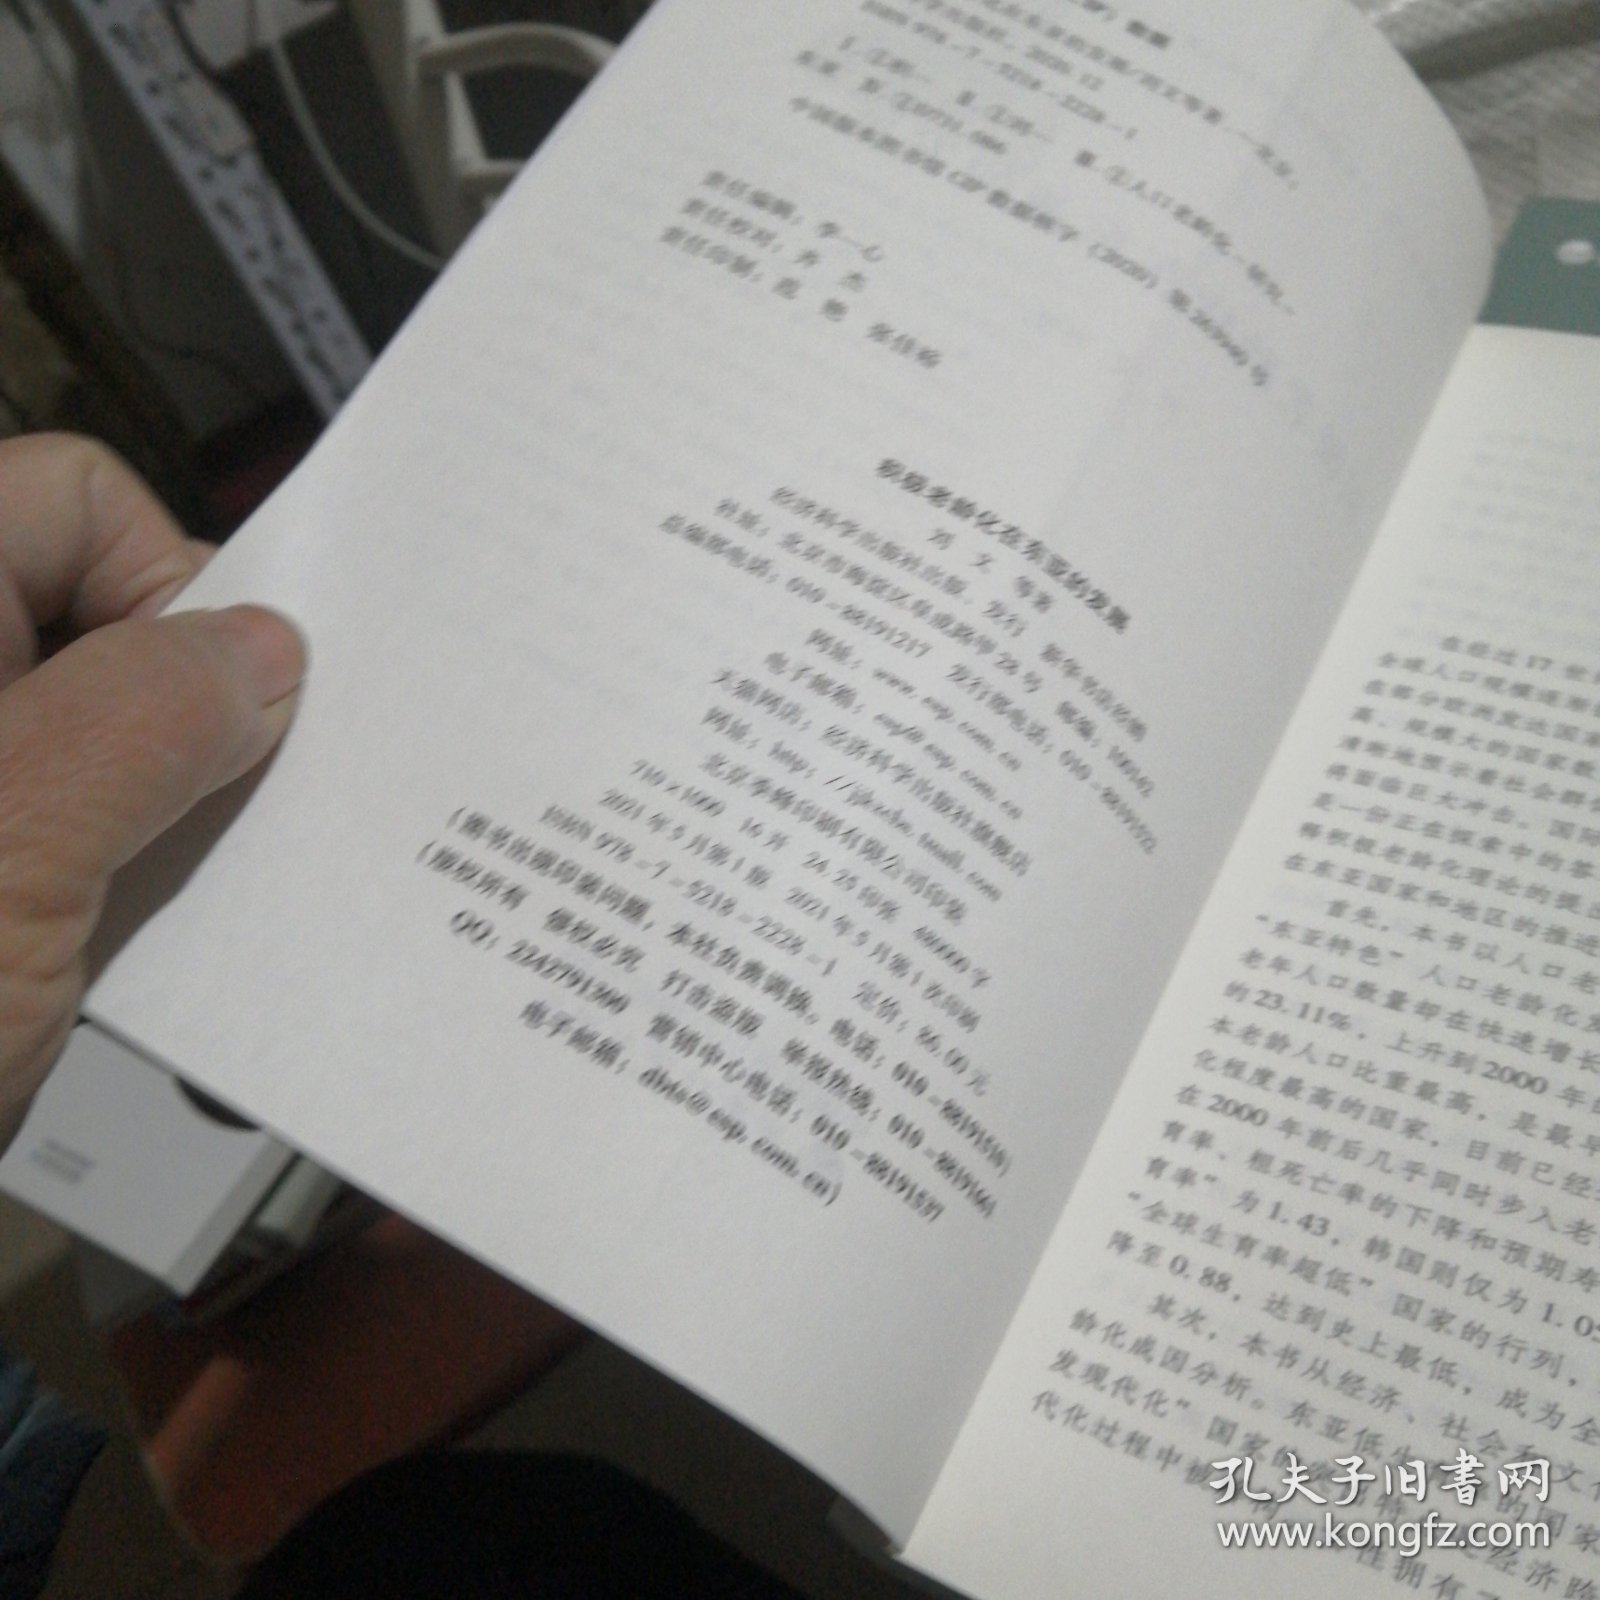 ISBN 978-7-5218-2228-1
Ⅰ.①积… Ⅱ.①刘… Ⅲ.①人口老龄化-研究-
东亚 Ⅳ.①
中国版本图书馆CIP数据核字(2020)第
责任编辑:李一心
责任校对:齐 杰
责任印制:范 艳 张佳裕
积极老龄化在东亚的发展
刘 文 等著
经济科学出版社出版、发行 新华书店经销
社址:北京市海淀区阜成路甲28号 邮编:100142
总编部电话:010-88191217 发行部电话:010-88191522
网址:www.esp.com.cn
电子邮箱:esp@esp.com.cn
天猫网店:经济科学出版社旗舰店
网址:http://jjkxcbs.tmall.com
北京季蜂印刷有限公司印装
710×1000 16开 24.25印张 480000字
2021年5月第1版 2021年5月第1次印刷
ISBN 978-7-5218-2228-1 定价:86.00元
(图书出现印装问题,本社负责调换。电话:010-88191510)
(版权所有 侵权必究 打击盗版 举报热线:010-88191661
QQ:2242791300 营销中心电话:010-88191537
电子邮箱:dbts@esp.com.cn)
在经过17世
全球人口规模逐渐
在部分欧洲发达国家
高、规模大的国家数
清晰地预示着社会群
将面临巨大冲击。国际
是一份正在探索中的答
将积极老龄化理论的提出
在东亚国家和地区的推进
首先,本书以人口老
“东亚特色”人口老龄化发
老年人口数量却在快速增长
的23.11%,上升到2000年的
本老龄人口比重最高,是最早
化程度最高的国家,目前已经
在2000年前后几乎同时步入老
育率、粗死亡率的下降和预期寿
育率”为1.43,韩国则仅为1.05
“全球生育率超低”国家的行列,
降至0.88,达到史上最低,成为全
其次,本书从经济、社会和文化
龄化成因分析。东亚低生育率的国家
发现代化”国家的
代化过程中被
孔夫子旧书网
www.kongfz.com